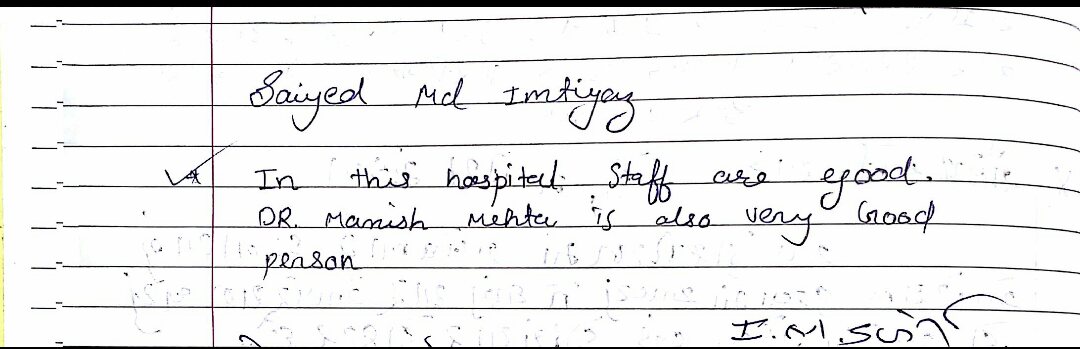 Saiyed Md Imtiyaz
In this hospital. Staff are good.
DR. Manish Mehta is also very Good
person